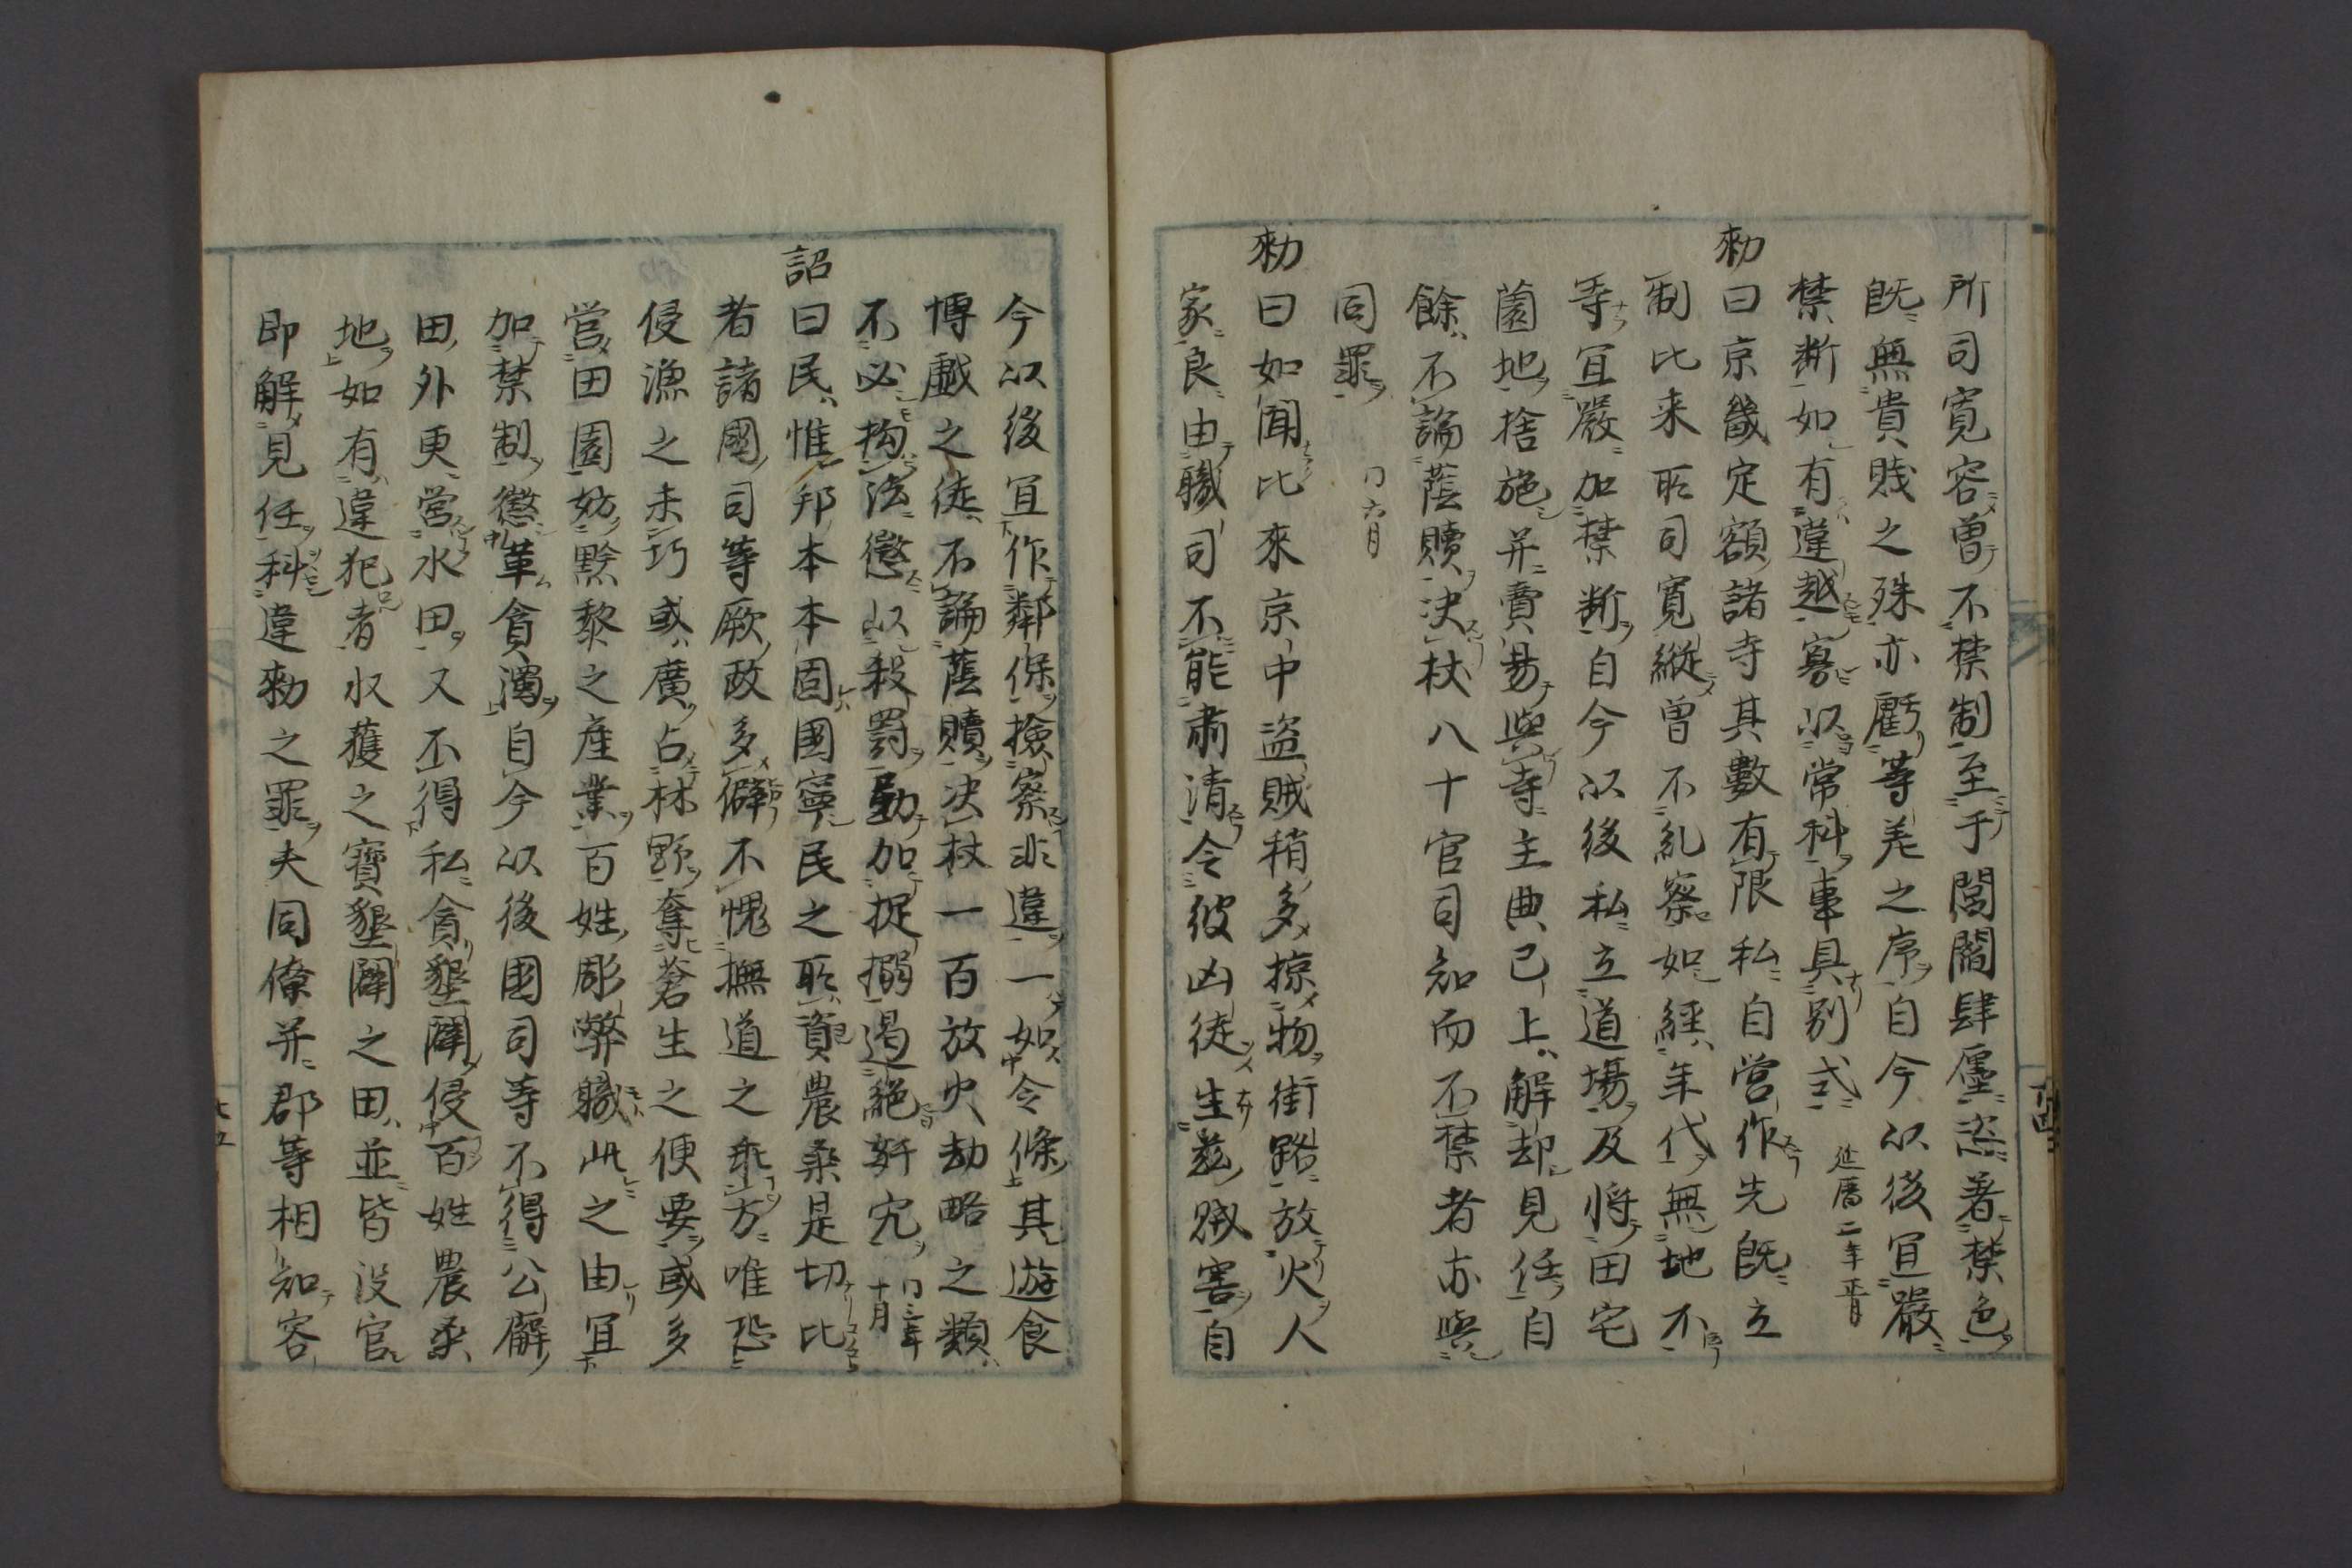 所司寛容曽不禁制至于閭閻肆廛恣著禁色
既無貴賤之殊亦虧等差之序自今以後宜嚴
禁断如有違越寘以常科事具別式 延暦二年正月
勅曰京畿定額諸寺其數有限私自営作先既立
制比来所司寛縦曽不糺察如経年代無地不
寺宜嚴加禁断自今以後私立道場及将田宅
園地捨施并賣易與寺主典已上解却見任自
餘不論蔭贖決杖八十官司知而不禁者亦與
同罪 〃六月
勅曰如聞比來京中盗賊稍多掠物街路放火人
家良由職司不能肅清令彼凶徒生茲賊害自
今以後宜作鄰保撿察非違一如令條其遊食
博戯之徒不論蔭贖決杖一百放火劫略之類
不必拘法懲以殺罰勤加捉搦遏絶姧宄 〃三年十月
詔曰民惟邦本本固國寧民之所資農桒是切比
者諸國司等厥政多僻不愧撫道之乖方唯恐
侵漁之未巧或廣占林野奪蒼生之便要或多
営田園妨黙黎之産業百姓彫弊職此之由宜
加禁制懲革貪濁自今以後國司等不得公廨
田外更営水田又不得私貪墾闢侵百姓農桒
地如有違犯者収獲之實墾闢之田並皆没官
即解見任科違勅之罪夫同僚并郡等相知容